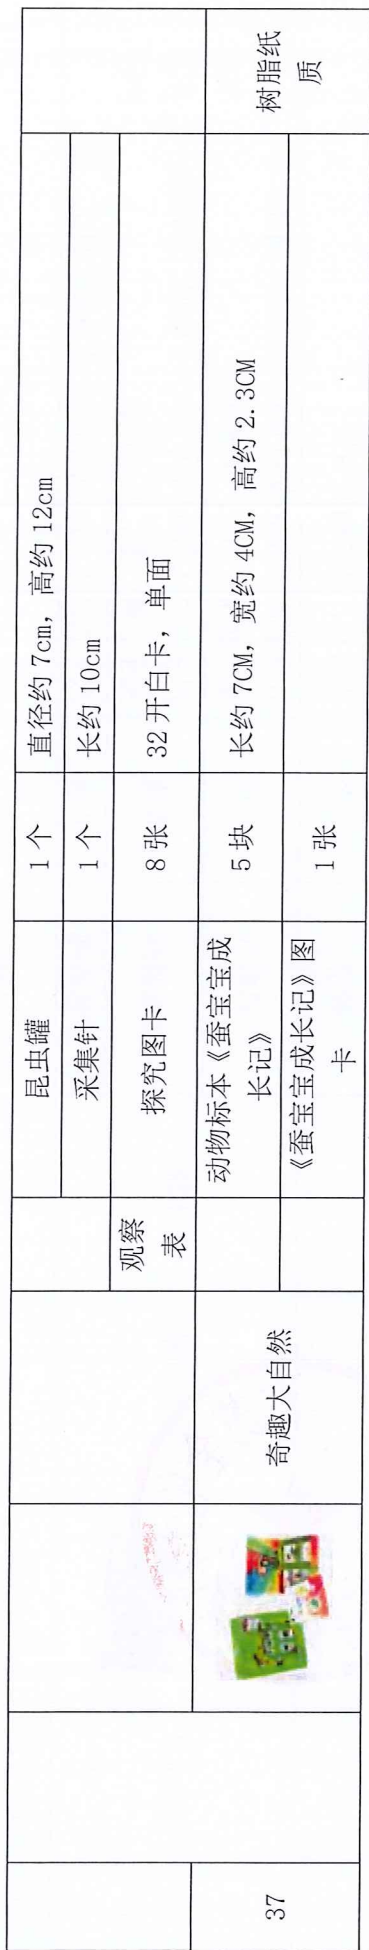 昆虫罐 1个 直径约7cm，高约12cm
采集针 1个 长约10cm
观察
表
探究图卡 8张 32开白卡，单面
37
奇趣大自然
动物标本《蚕宝宝成
长记》
5块 长约7CM，宽约4CM，高约2.3CM
树脂纸
质
《蚕宝宝成长记》图
卡
1张